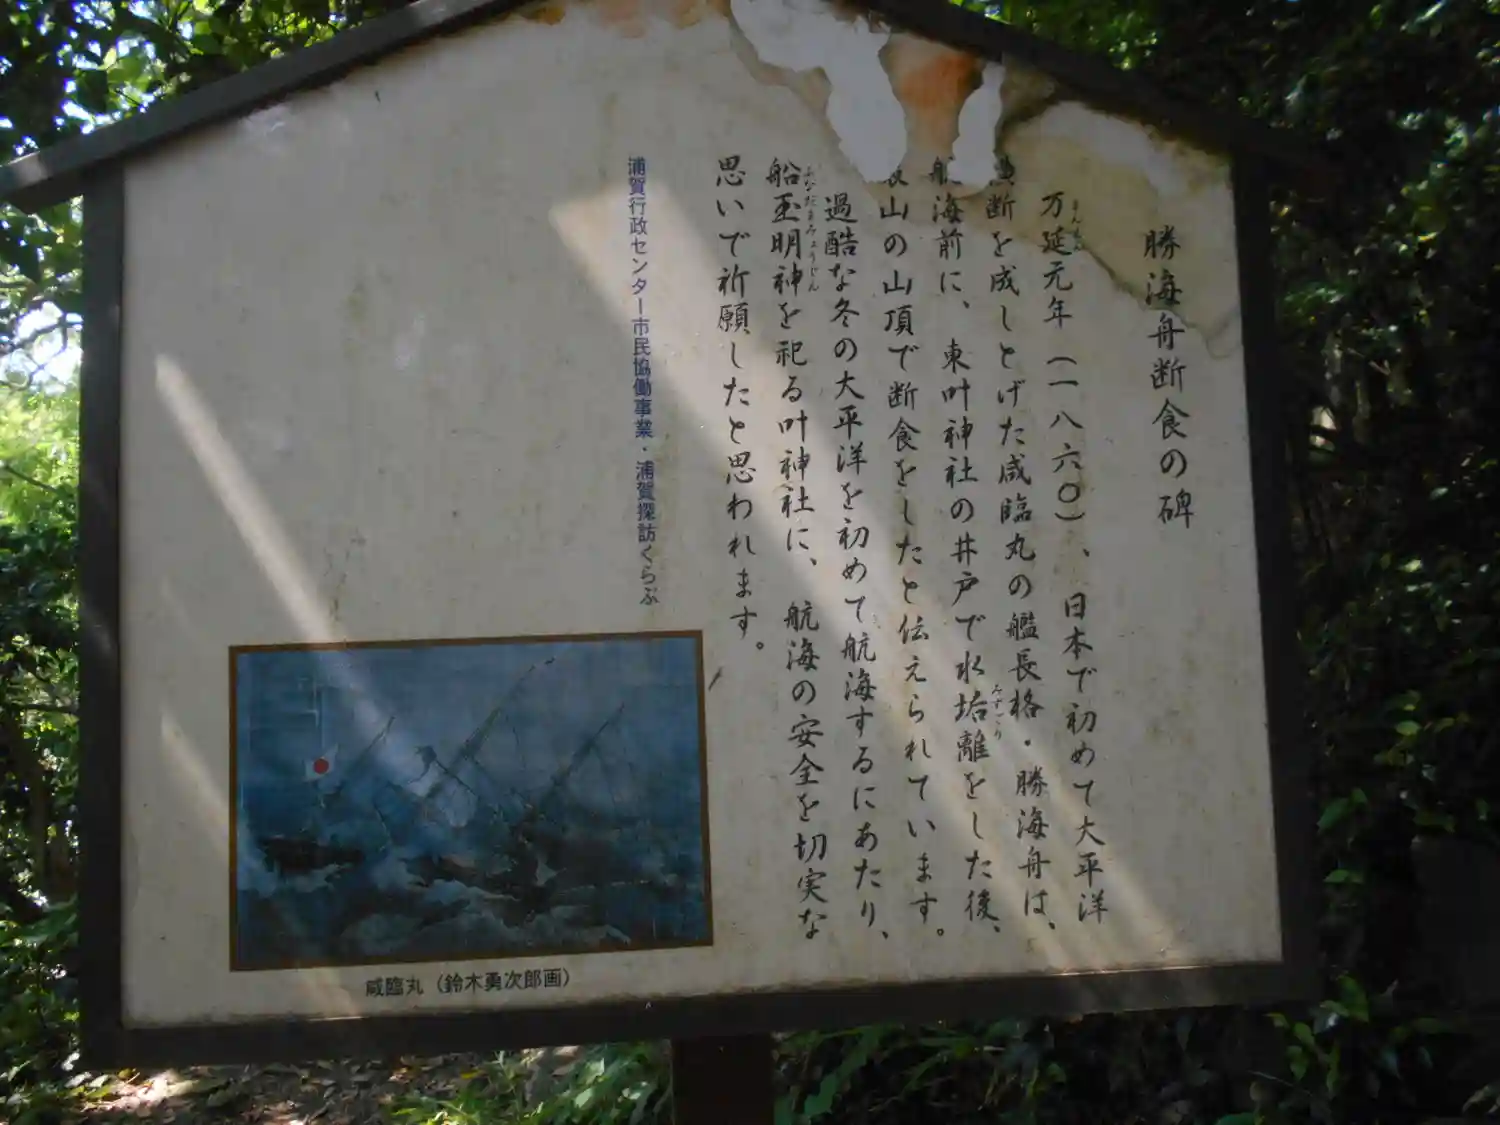 勝海舟断食の碑
万延元年（一八六〇）、日本で初めて大平洋
断を成しとげた咸臨丸の艦長格・勝海舟は、
航海前に、東叶神社の井戸で水垢離をした後、
山の山頂で断食をしたと伝えられています。
過酷な冬の大平洋を初めて航海するにあたり、
船玉明神を祀る叶神社に、航海の安全を切実な
思いで祈願したと思われます。
浦賀行政センター市民協働事業・浦賀探訪くらぶ
咸臨丸（鈴木勇次郎画）